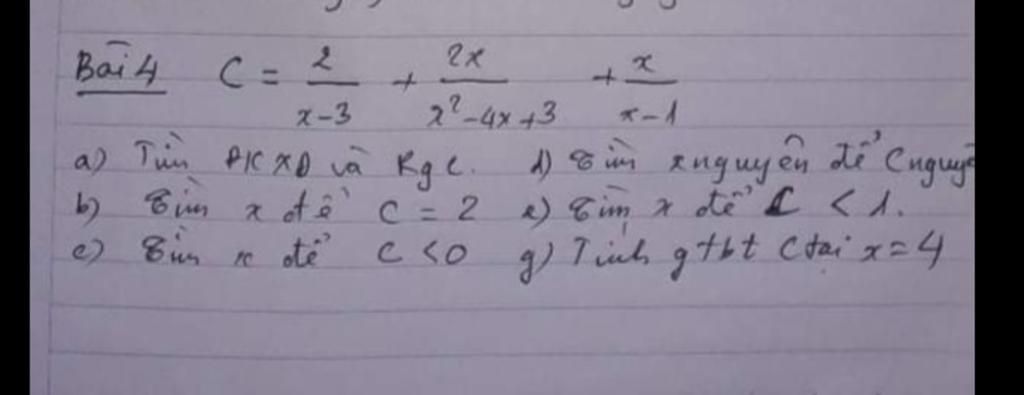 Bài 4 C = 2/(x-3) + 2x/(x²-4x+3) + x/(x-1)
a) Tìm ĐKXĐ và Rg C. d) Tìm x nguyên để C nguyê
b) Tìm x để C = 2 e) Tìm x để C < 1.
c) Tìm x để C < 0 g) Tính gtbt C tại x = 4